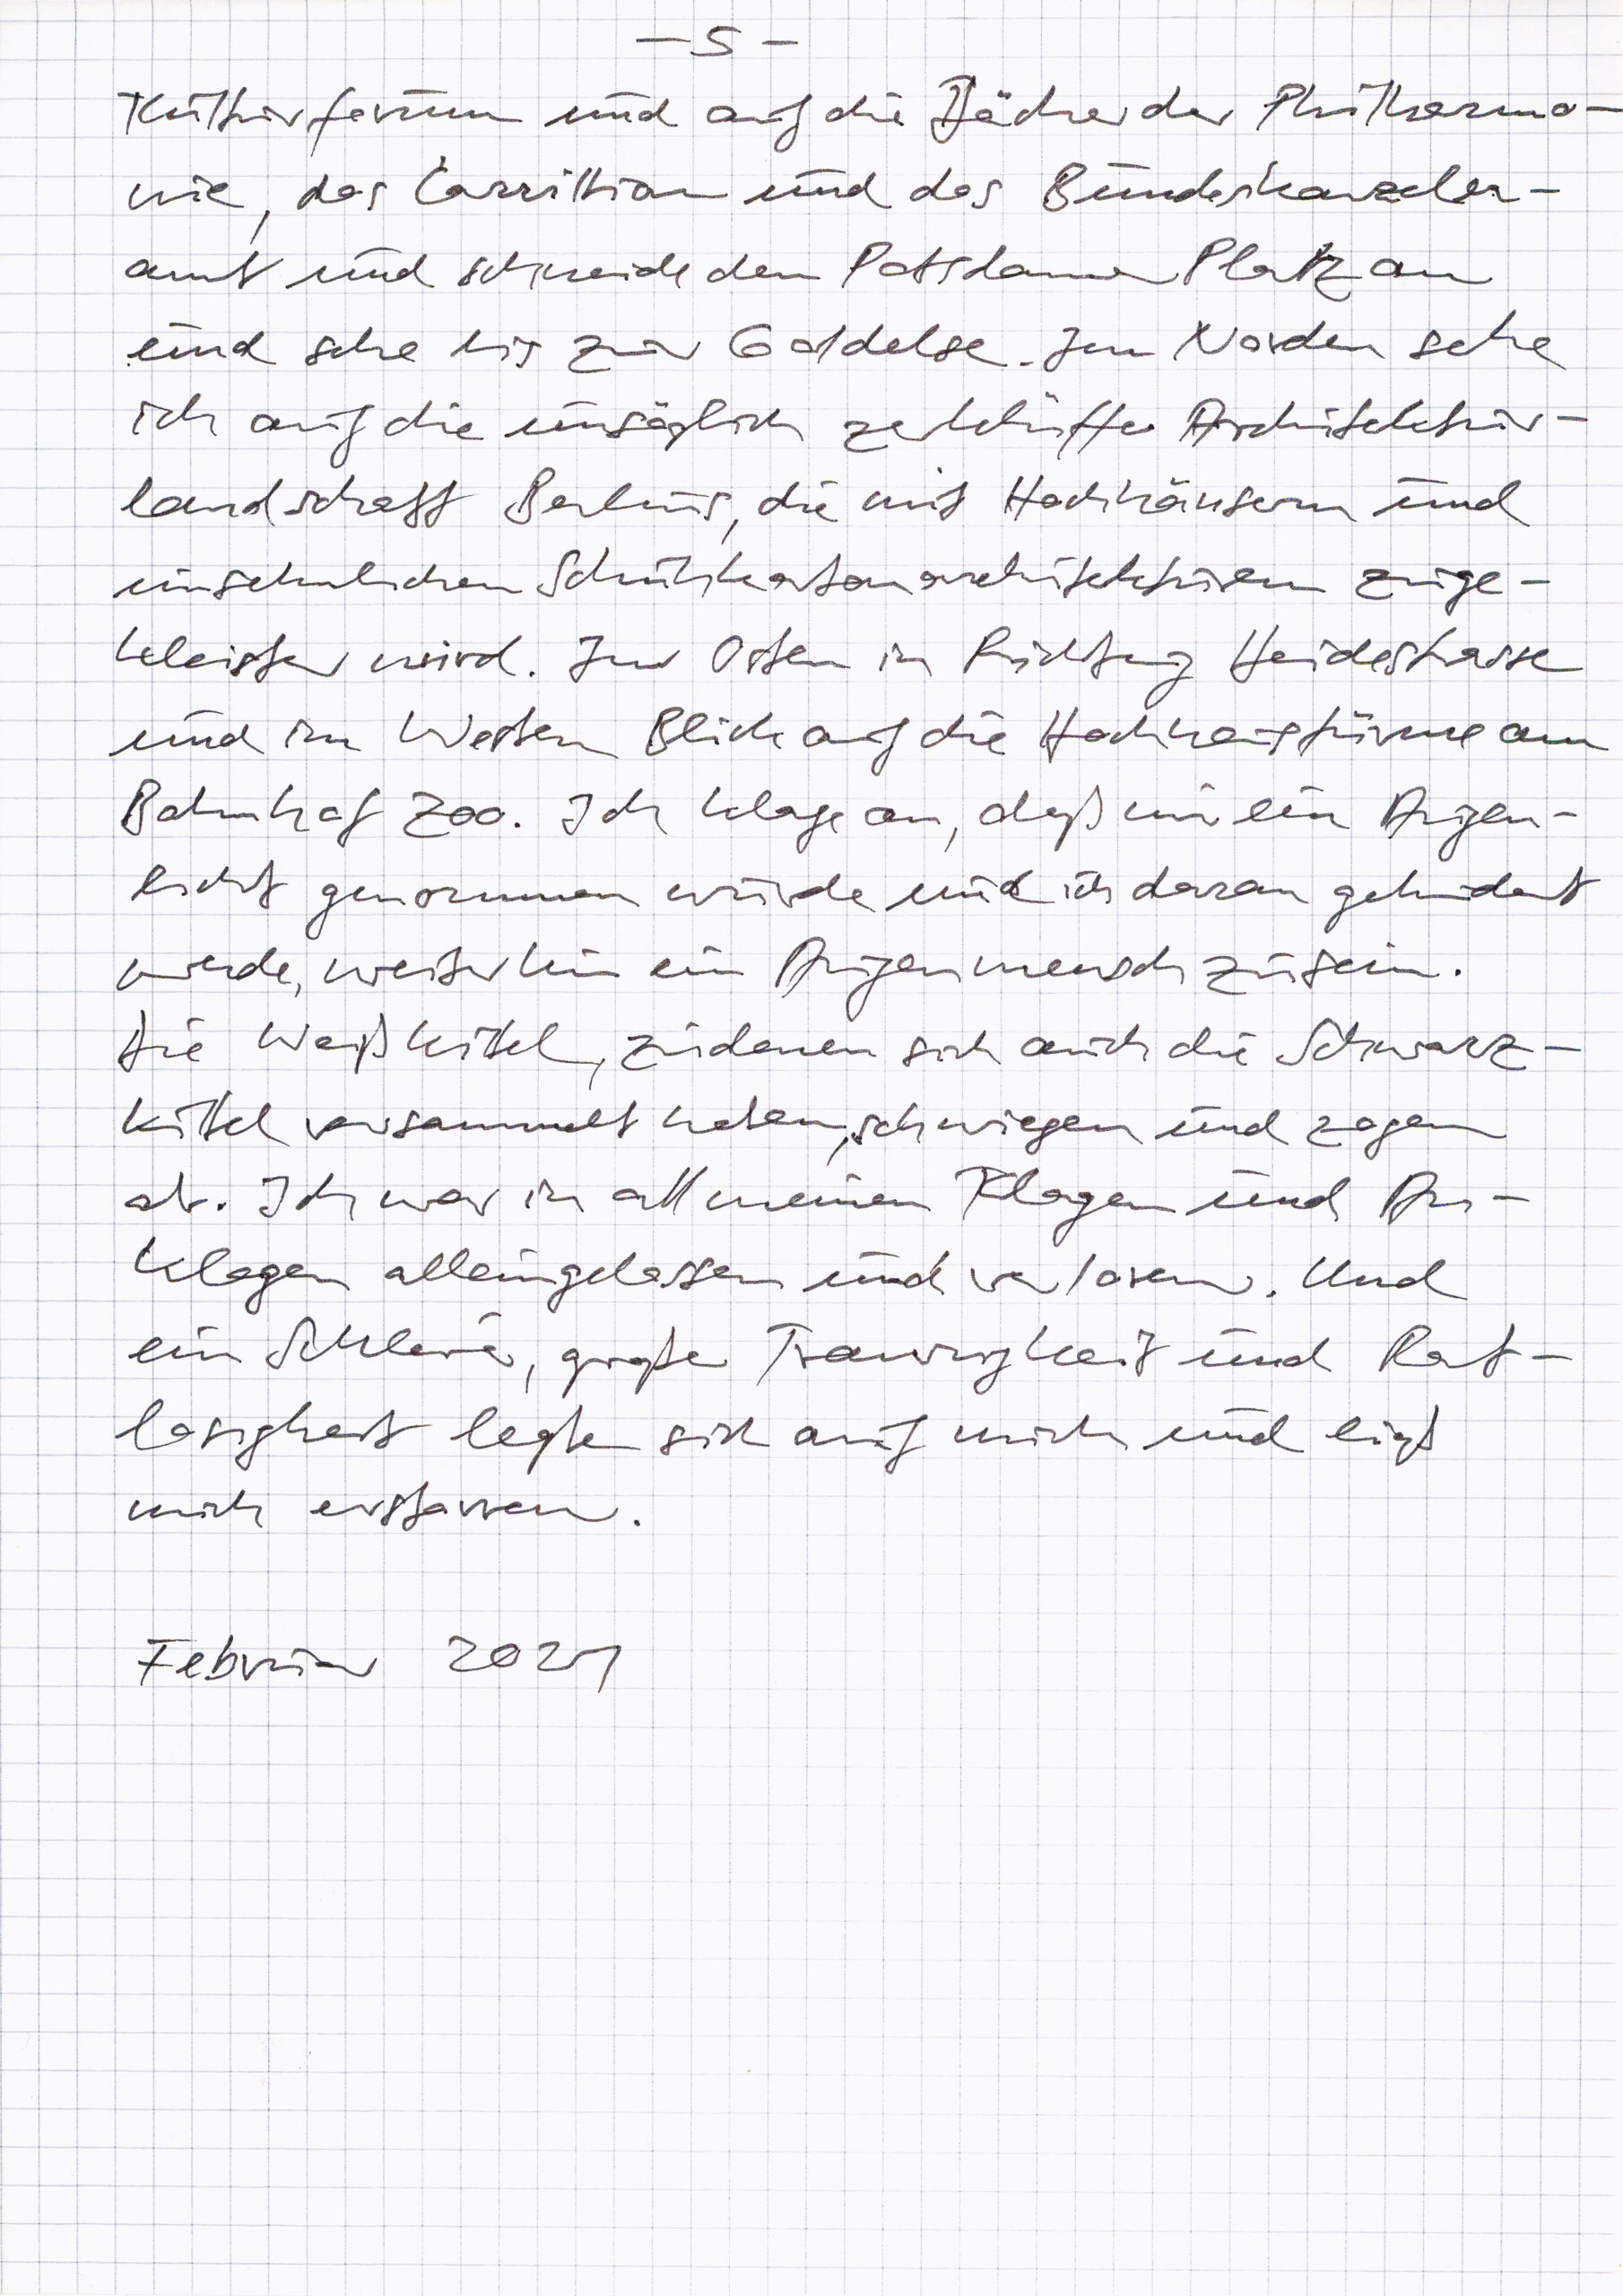 - 5 -
Kulturforum und auf die Dächer der Philharmo-
nie, des Carrillion und des Bundeskanzler-
amt und schneide den Potsdamer Platz an
und sehe bis zur Goldelse. Im Norden sehe
ich auf die unsäglich zerklüftte Architektur-
landschaft Berlins, die mit Hochhäusern und
unsehnlichen Schuhkartonarchitekturen zuge-
kleistert wird. Im Osten in Richtung Heidestrasse
und im Westen Blick auf die Hochhaustürme am
Bahnhof Zoo. Ich klage an, daß mir ein Augen-
licht genommen wurde und ich daran gehindert
werde, weiterhin ein Augenmensch zu sein.
Die Weißkittel, zu denen sich auch die Schwarz-
kittel versammelt haben, schwiegen und zogen
ab. Ich war in all meinen Klagen und An-
klagen alleingelassen und verloren. Und
ein Schleier, große Traurigkeit und Rat-
losigkeit legte sich auf mich und ließ
mich erstarren.
Februar 2021